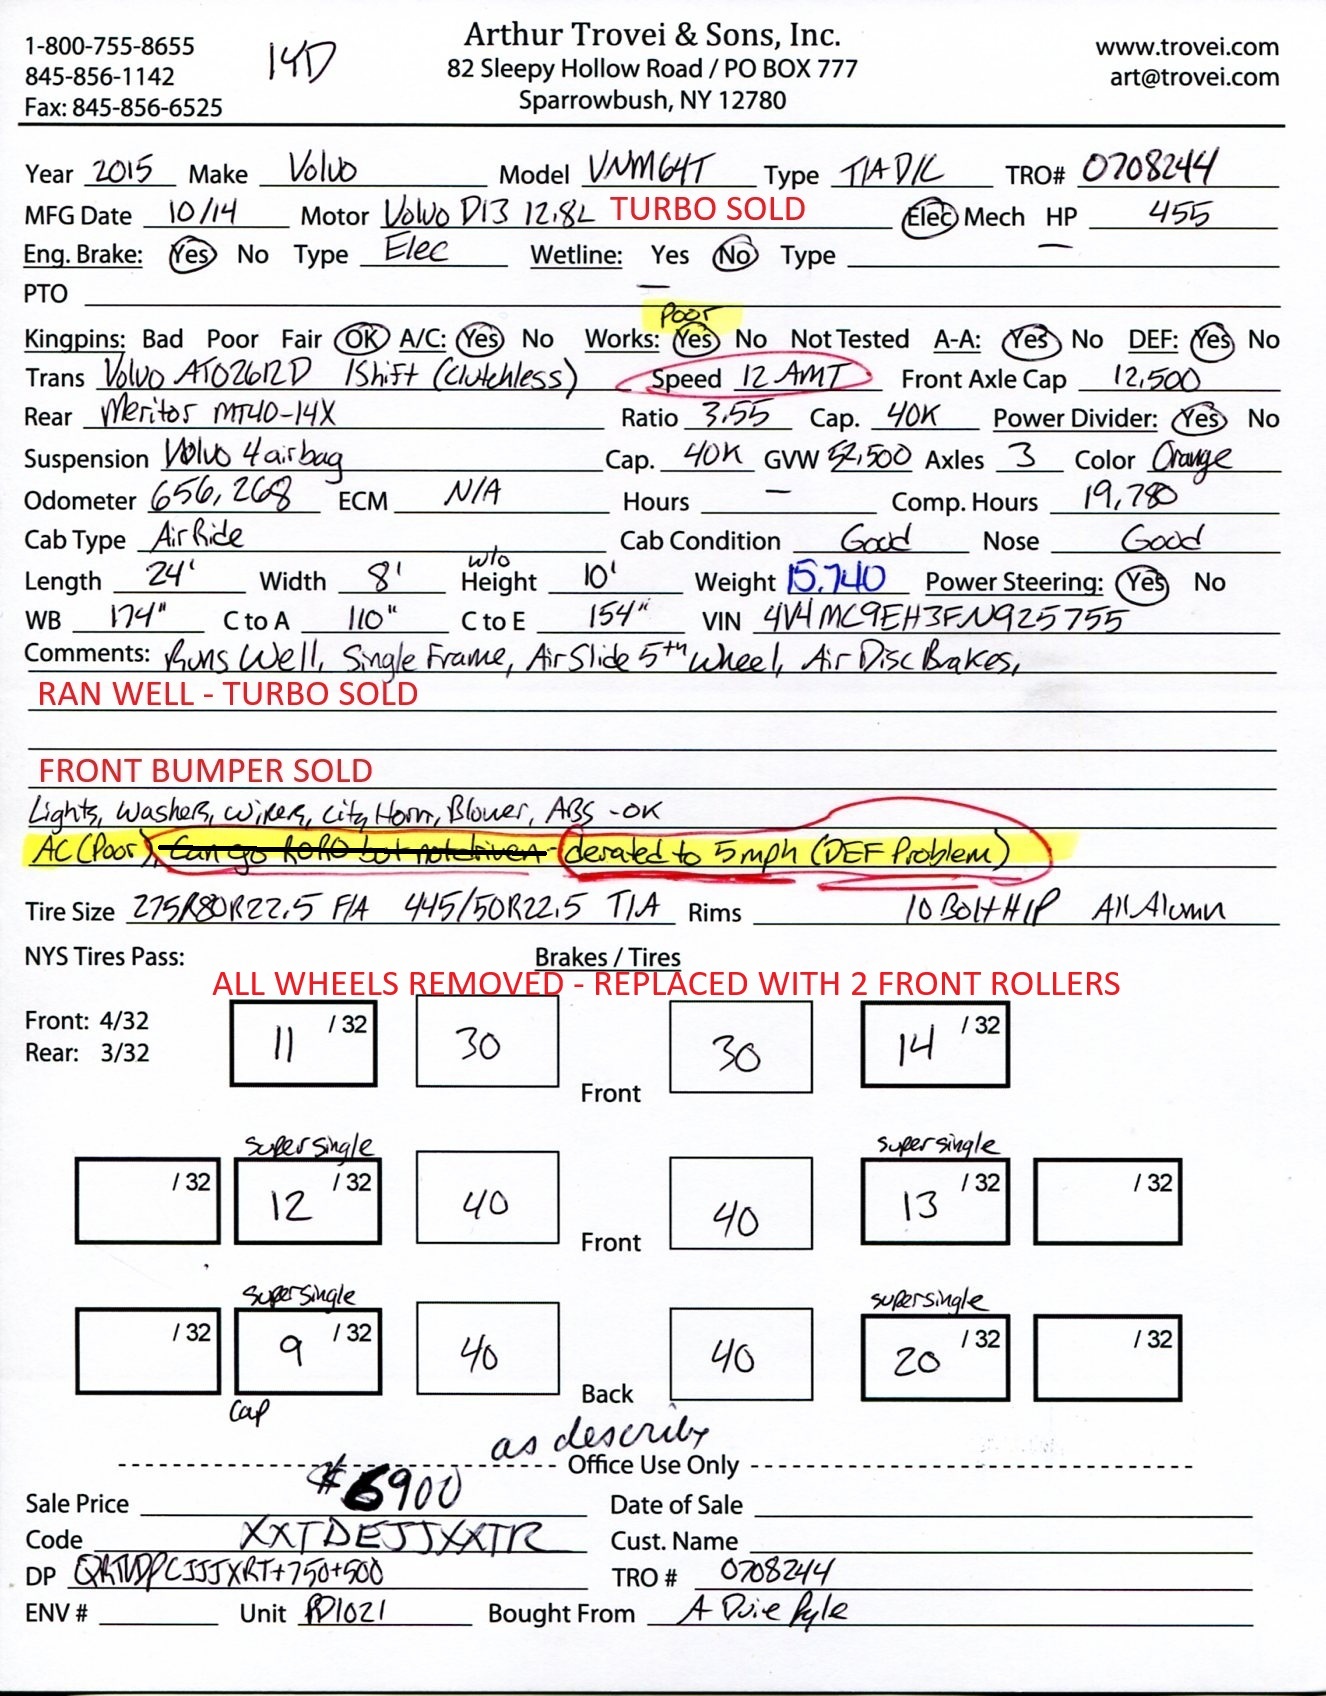 1-800-755-8655
845-856-1142
Fax: 845-856-6525
14D
Arthur Trovei & Sons, Inc.
82 Sleepy Hollow Road / PO BOX 777
Sparrowbush, NY 12780
www.trovei.com
art@trovei.com
Year 2015 Make Volvo Model VNM64T Type T/A D/C TRO# 0708244
MFG Date 10/14 Motor Volvo D13 12.8L TURBO SOLD Elec Mech HP 455
Eng. Brake: Yes No Type Elec Wetline: Yes No Type
PTO —
Poor
Kingpins: Bad Poor Fair OK A/C: Yes No Works: Yes No Not Tested A-A: Yes No DEF: Yes No
Trans Volvo ATO2612D IShift (Clutchless) Speed 12 AMT Front Axle Cap 12,500
Rear Meritor MT40-14X Ratio 3.55 Cap. 40K Power Divider: Yes No
Suspension Volvo 4 airbag Cap. 40K GVW 52,500 Axles 3 Color Orange
Odometer 656,268 ECM N/A Hours — Comp. Hours 19,780
Cab Type Air Ride Cab Condition Good Nose Good
w/o
Length 24' Width 8' Height 10' Weight 15,740 Power Steering: Yes No
WB 174" C to A 110" C to E 154" VIN 4V4MC9EH3FN925755
Comments: Runs Well, Single Frame, Air Slide 5th Wheel, Air Disc Brakes,
RAN WELL - TURBO SOLD
FRONT BUMPER SOLD
Lights, Washers, Wipers, City Horn, Blower, ABS - OK
AC (Poor), Can go RORO but not driven - derated to 5 mph (DEF Problem)
Tire Size 275R80R22.5 F/A 445/50R22.5 T/A Rims 10 Bolt H/P All Alumn
NYS Tires Pass: Brakes / Tires
ALL WHEELS REMOVED - REPLACED WITH 2 FRONT ROLLERS
Front: 4/32
Rear: 3/32
11 / 32 30 Front 30 14 / 32
supersingle supersingle
/ 32 12 / 32 40 Front 40 13 / 32 / 32
supersingle supersingle
/ 32 9 / 32 40 Back 40 20 / 32 / 32
Cap
as describ
Office Use Only
Sale Price $6900 Date of Sale
Code XXTDEJJXXTR Cust. Name
DP TRO # 0708244
ENV # Unit PD1021 Bought From A Duie Pyle